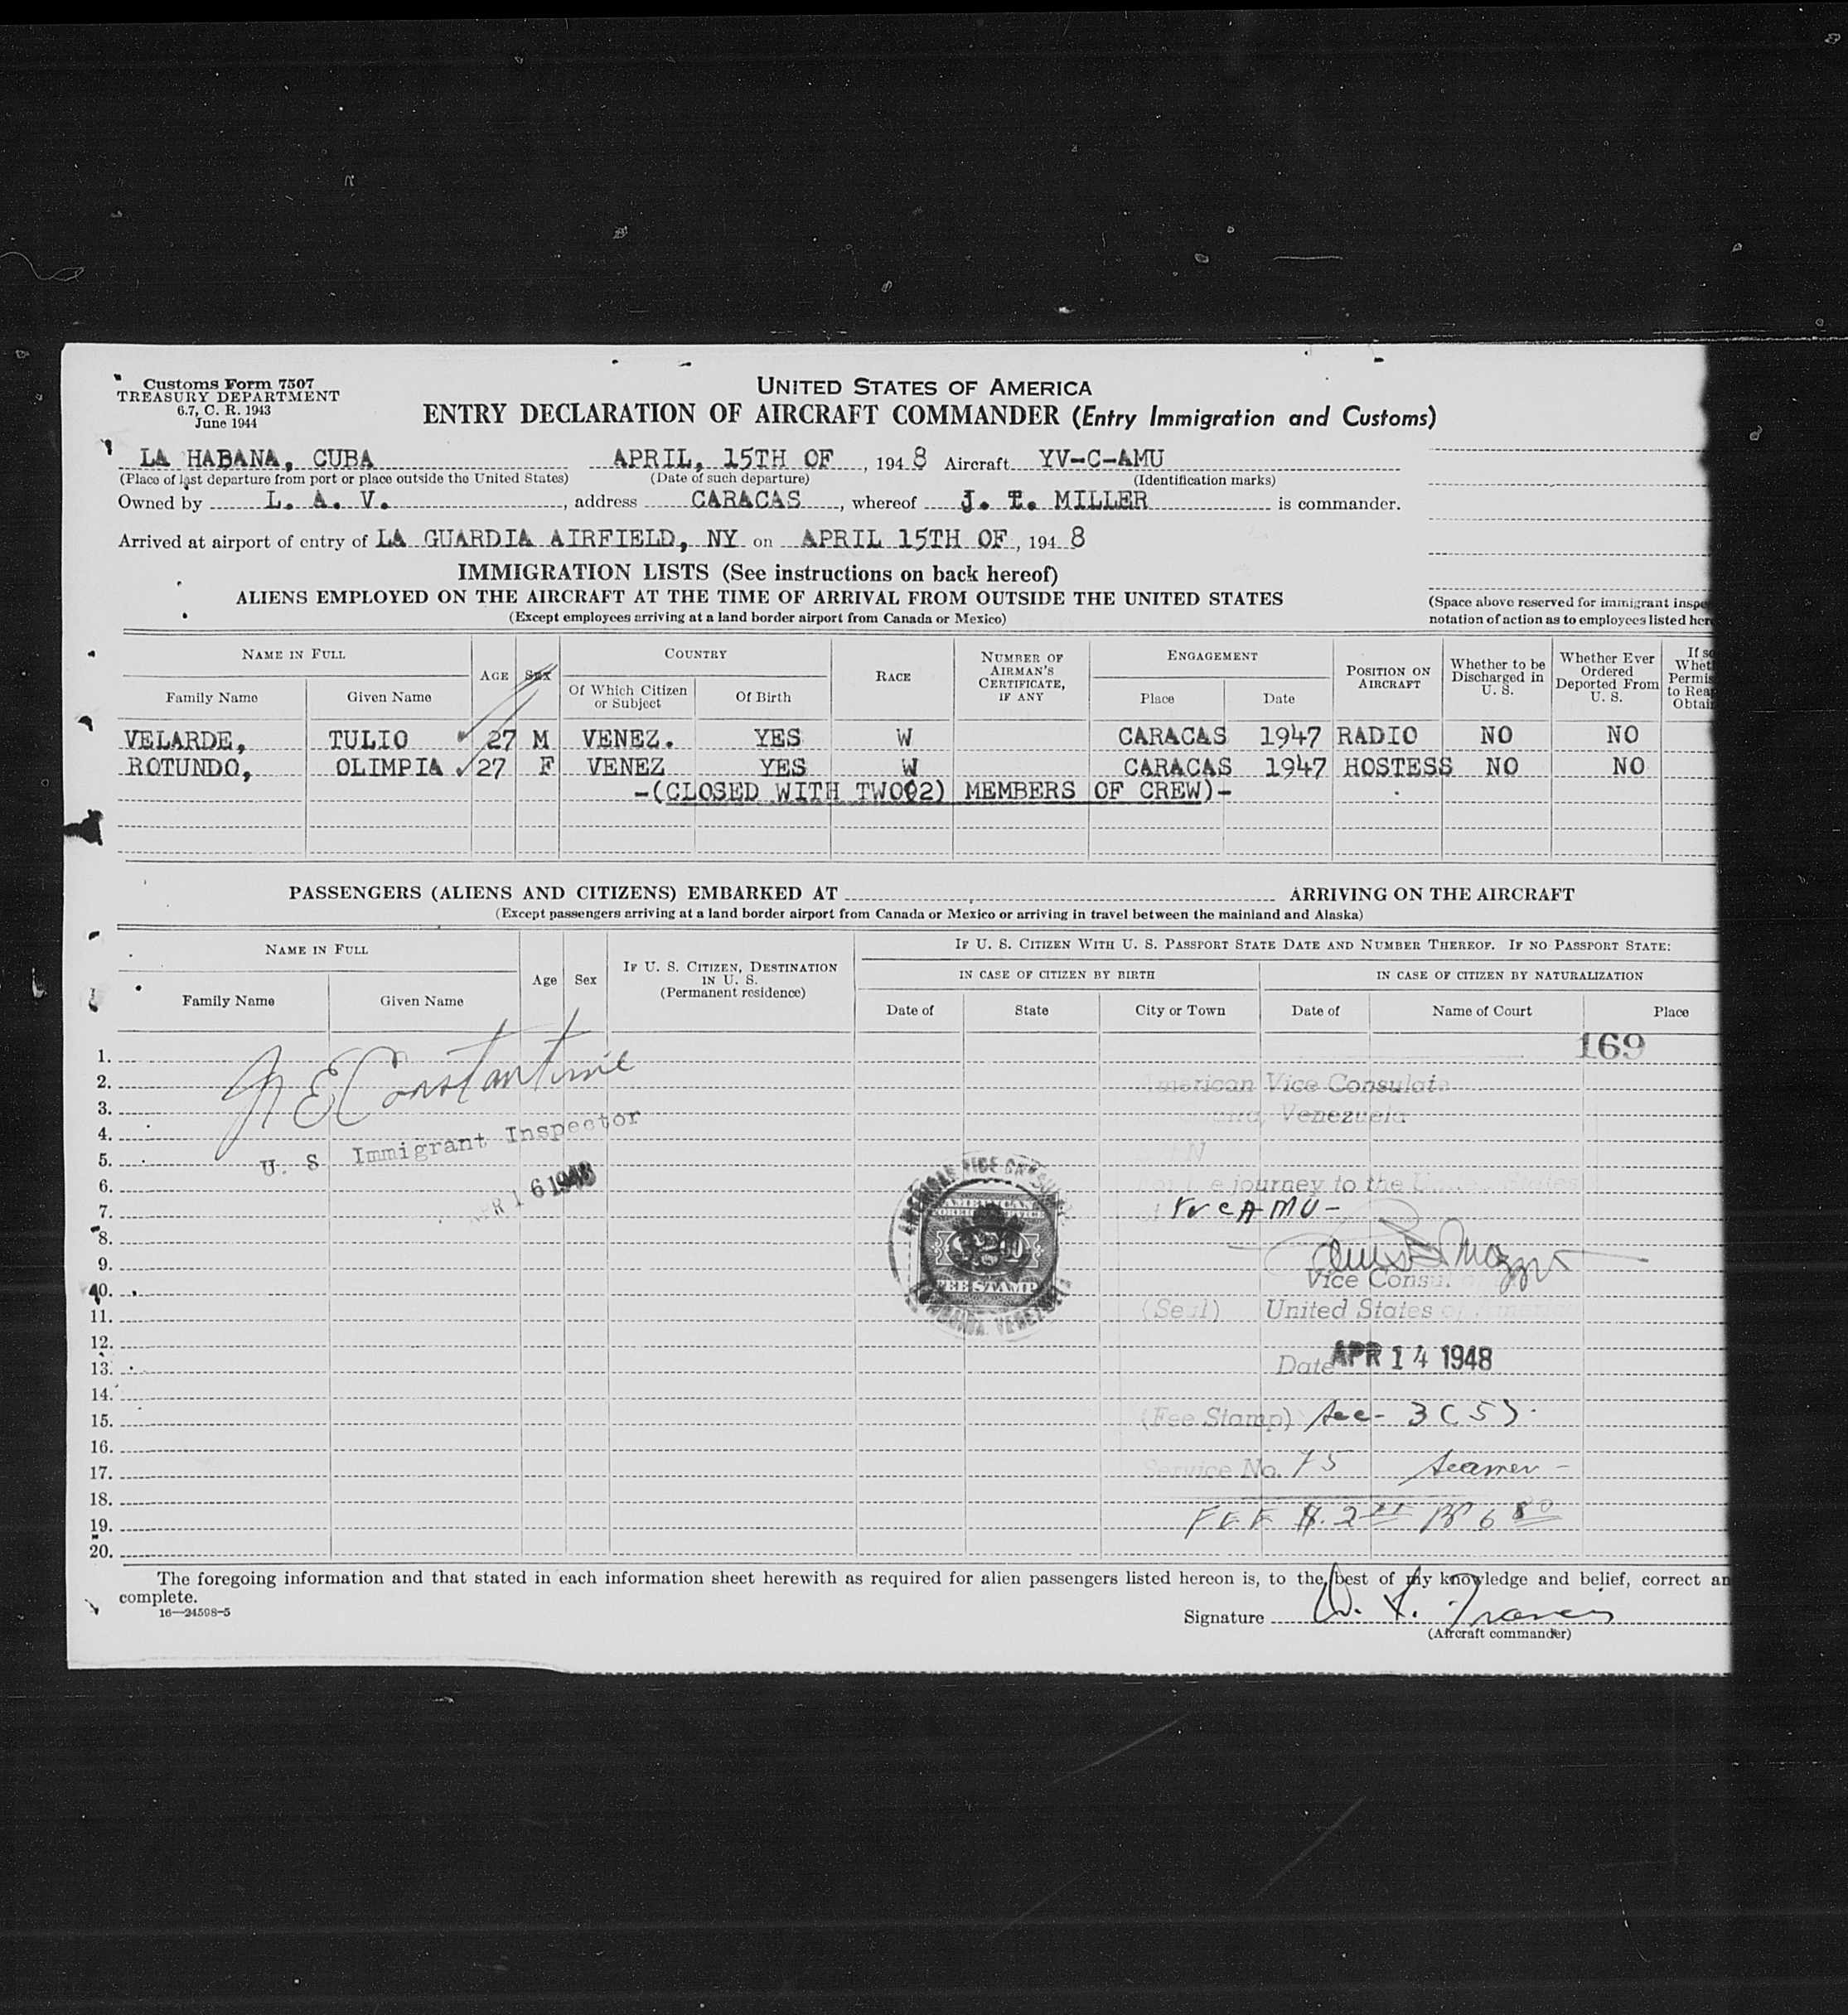 Customs Form 7507
TREASURY DEPARTMENT
6.7, C. R. 1943
June 1944
UNITED STATES OF AMERICA
ENTRY DECLARATION OF AIRCRAFT COMMANDER (Entry Immigration and Customs)
LA HABANA, CUBA APRIL, 15TH OF, 1948 Aircraft YV-C-AMU
(Place of last departure from port or place outside the United States) (Date of such departure) (Identification marks)
Owned by L. A. V., address CARACAS, whereof J. E. MILLER is commander.
Arrived at airport of entry of LA GUARDIA AIRFIELD, NY on APRIL 15TH OF, 1948
IMMIGRATION LISTS (See instructions on back hereof)
ALIENS EMPLOYED ON THE AIRCRAFT AT THE TIME OF ARRIVAL FROM OUTSIDE THE UNITED STATES
(Except employees arriving at a land border airport from Canada or Mexico)
(Space above reserved for immigrant inspe
notation of action as to employees listed her
NAME IN FULL AGE SEX COUNTRY RACE NUMBER OF AIRMAN'S CERTIFICATE, IF ANY ENGAGEMENT POSITION ON AIRCRAFT Whether to be Discharged in U. S. Whether Ever Ordered Deported From U. S. If so Whet Permis to Rea Obtai
Family Name Given Name Of Which Citizen or Subject Of Birth Place Date
VELARDE, TULIO 27 M VENEZ. YES W CARACAS 1947 RADIO NO NO
ROTUNDO, OLIMPIA 27 F VENEZ YES W CARACAS 1947 HOSTESS NO NO
-(CLOSED WITH TWO(2) MEMBERS OF CREW)-
PASSENGERS (ALIENS AND CITIZENS) EMBARKED AT ARRIVING ON THE AIRCRAFT
(Except passengers arriving at a land border airport from Canada or Mexico or arriving in travel between the mainland and Alaska)
NAME IN FULL Age Sex IF U. S. CITIZEN, DESTINATION IN U. S. (Permanent residence) IF U. S. CITIZEN WITH U. S. PASSPORT STATE DATE AND NUMBER THEREOF. IF NO PASSPORT STATE:
IN CASE OF CITIZEN BY BIRTH IN CASE OF CITIZEN BY NATURALIZATION
Family Name Given Name Date of State City or Town Date of Name of Court Place
169
1.
2. American Vice Consulate
3. Venezuela
4.
5.
6. journey to the
7. YVCAMU-
8.
9.
10. Vice Consul
11. (Seal) United States of America
12.
13. Date APR 14 1948
14.
15. (Fee Stamp) Sec- 3(5).
16.
17. Service No. 75 Seamen -
18.
19. FEE $.2
20.
N E Constantine
U. S Immigrant Inspector
APR 16 1948
AMERICAN VICE CONSULATE
AMERICAN
FOREIGN SERVICE
FEE STAMP
VENEZUELA
The foregoing information and that stated in each information sheet herewith as required for alien passengers listed hereon is, to the best of my knowledge and belief, correct an
complete.
16—24598-5
Signature
(Aircraft commander)